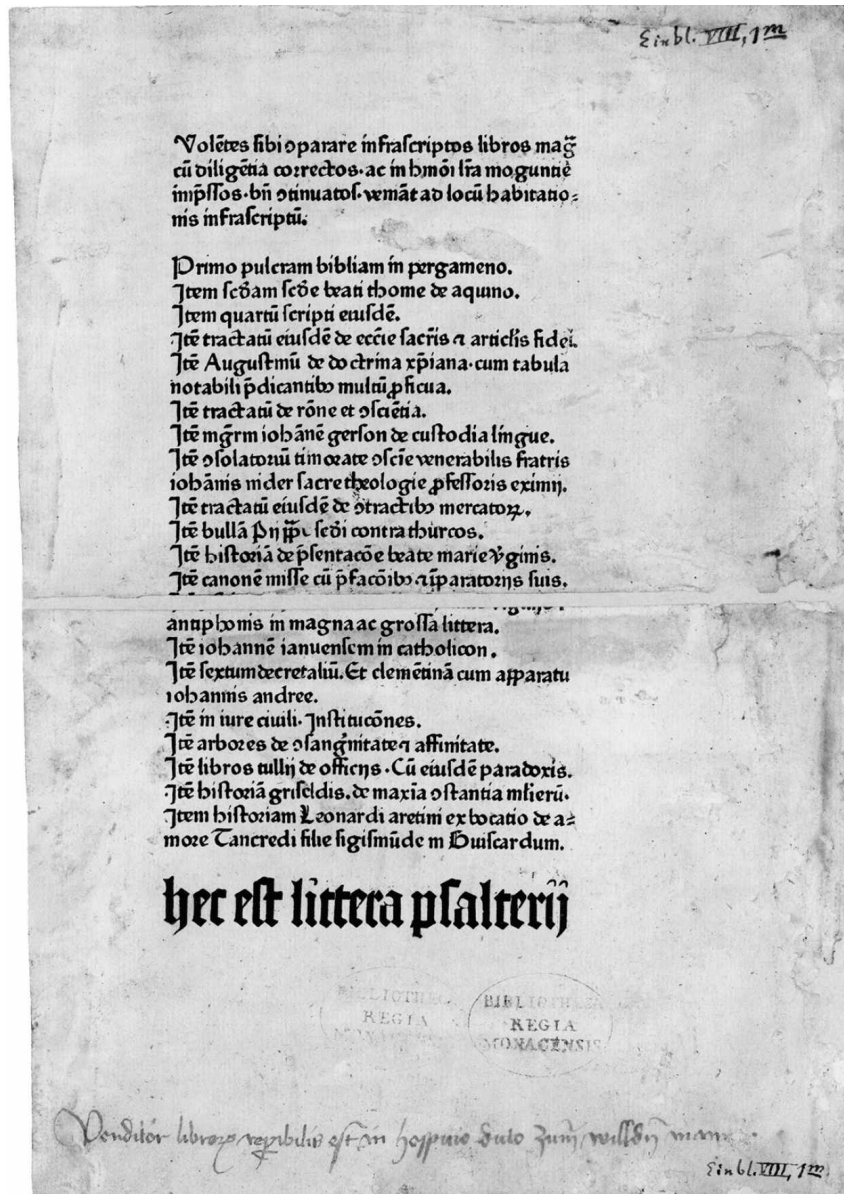 Einbl. VIII, 1 m
Volētes sibi ꝯparare infrascriptos libros mag̅
cū diligētia correctos. ac in hmōi lr̄a moguntie
imp̄ssos. bn̄ ꝯtinuatos. veniāt ad locū habitatio⸗
nis infrascriptū.
Primo pulcram bibliam in pergameno.
Item scd̄am scd̄e beati thome de aquino.
Item quartū scripti eiusdē.
Itē tractatū eiusdē de eccīe sacrīs ⁊ articlīs fidei.
Itē Augustinū de doctrina xp̄iana. cum tabula
notabili p̄dicantibꝰ multū ꝓficua.
Itē tractatū de rōne et ꝯsciētia.
Itē mgr̄m iohānē gerson de custodia lingue.
Itē ꝯsolatoriū timorate ꝯscīe venerabilis fratris
iohānis nider sacre theologie ꝓfessoris eximij.
Itē tractatū eiusdē de ꝯtractibꝰ mercatoꝝ.
Itē bullā Pij pp̄e scd̄i contra thurcos.
Itē historiā de p̄sentacōe beate marie v̓ginis.
Itē canonē misse cū p̄facōibꝰ ⁊ ip̄aratorijs suis.
antiphonis in magna ac grossa littera.
Itē iohannē ianuensem in catholicon.
Itē sextum decretaliū. Et clemētinā cum apparatu
iohannis andree.
Itē in iure ciuili. Institucōnes.
Itē arbores de ꝯsangͥnitate ⁊ affinitate.
Itē libros tullij de officijs. Cū eiusdē paradoxis.
Itē historiā griseldis. de maxīa ꝯstantia mlīerū.
Item historiam Leonardi aretini ex bocatio de a⸗
more Tancredi filie sigismūde in Guiscardum.
hec est littera psalterij
BIBLIOTHECA
REGIA
MONACENSIS
BIBLIOTHECA
REGIA
MONACENSIS
Venditor libroꝝ repibilis est in hospicio dicto zum willden mann
Einbl. VIII, 1 m